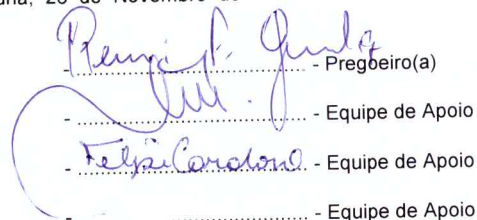 de Novembro de
- ........ - Pregoeiro(a)
- ........ - Equipe de Apoio
- Felipe Cardoso - Equipe de Apoio
- ........ - Equipe de Apoio